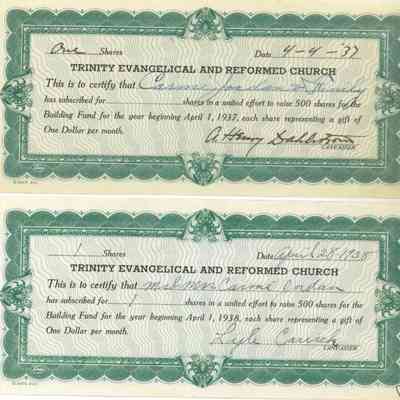 One Shares Date 4-4-'37
TRINITY EVANGELICAL AND REFORMED CHURCH
This is to certify that Jordan
has subscribed for shares in a united effort to raise 500 shares for the
Building Fund for the year beginning April 1, 1937, each share representing a gift of
One Dollar per month. A. Henry
CANVASSER
1 Shares Date April 28, 1938
TRINITY EVANGELICAL AND REFORMED CHURCH
This is to certify that
has subscribed for 1 shares in a united effort to raise 500 shares for the
Building Fund for the year beginning April 1, 1938, each share representing a gift of
One Dollar per month. Lyle
CANVASSER